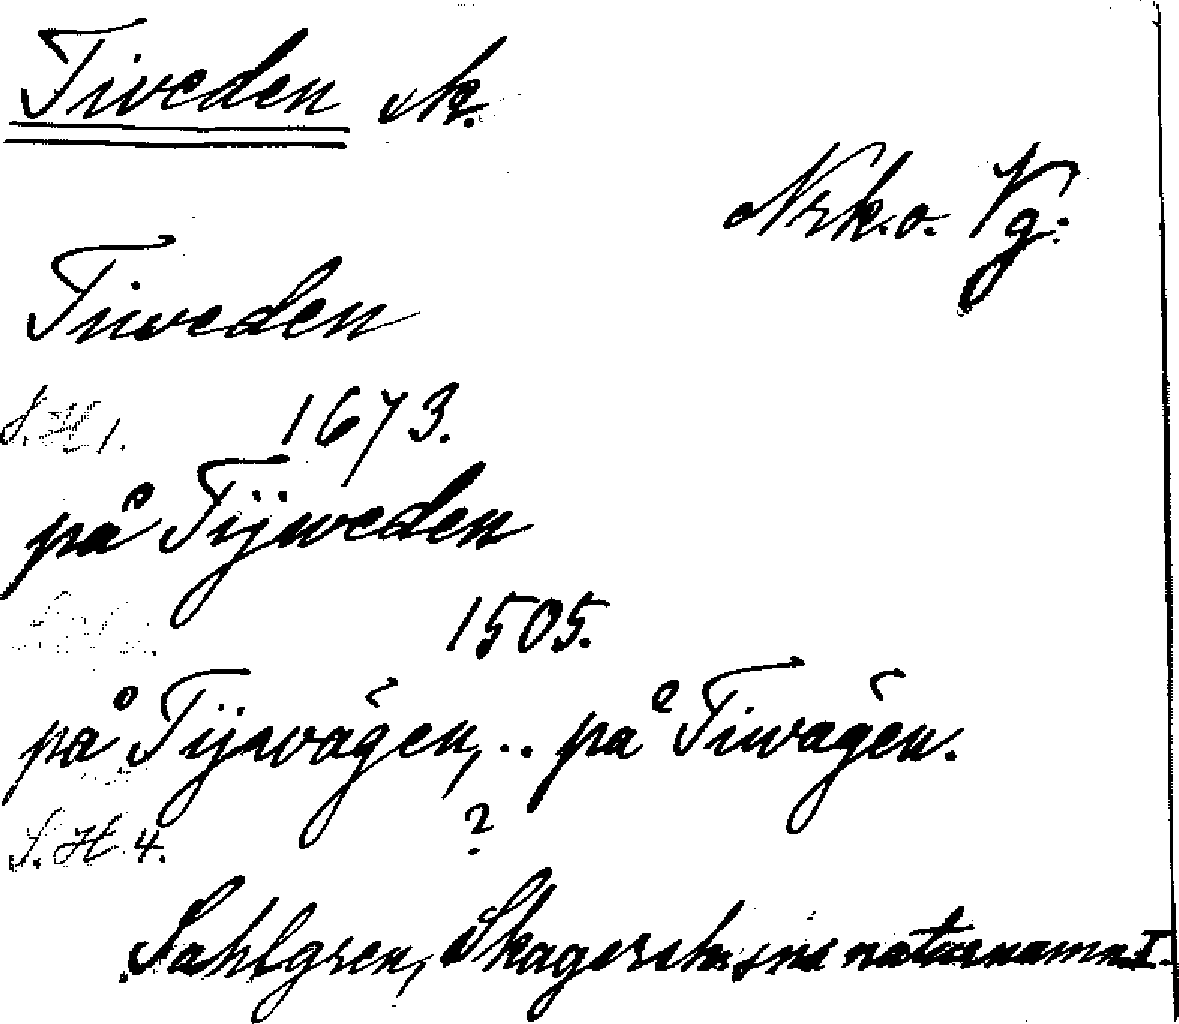 Tiveden sk.
Nrk. o. Vg.
Tiiweden
S.H 1. 1673.
på Tijweden
1505.
på Tijwägen, .. på Tiwägen.
S.H 4. ?
Sahlgren, Skagershults naturnamn I.